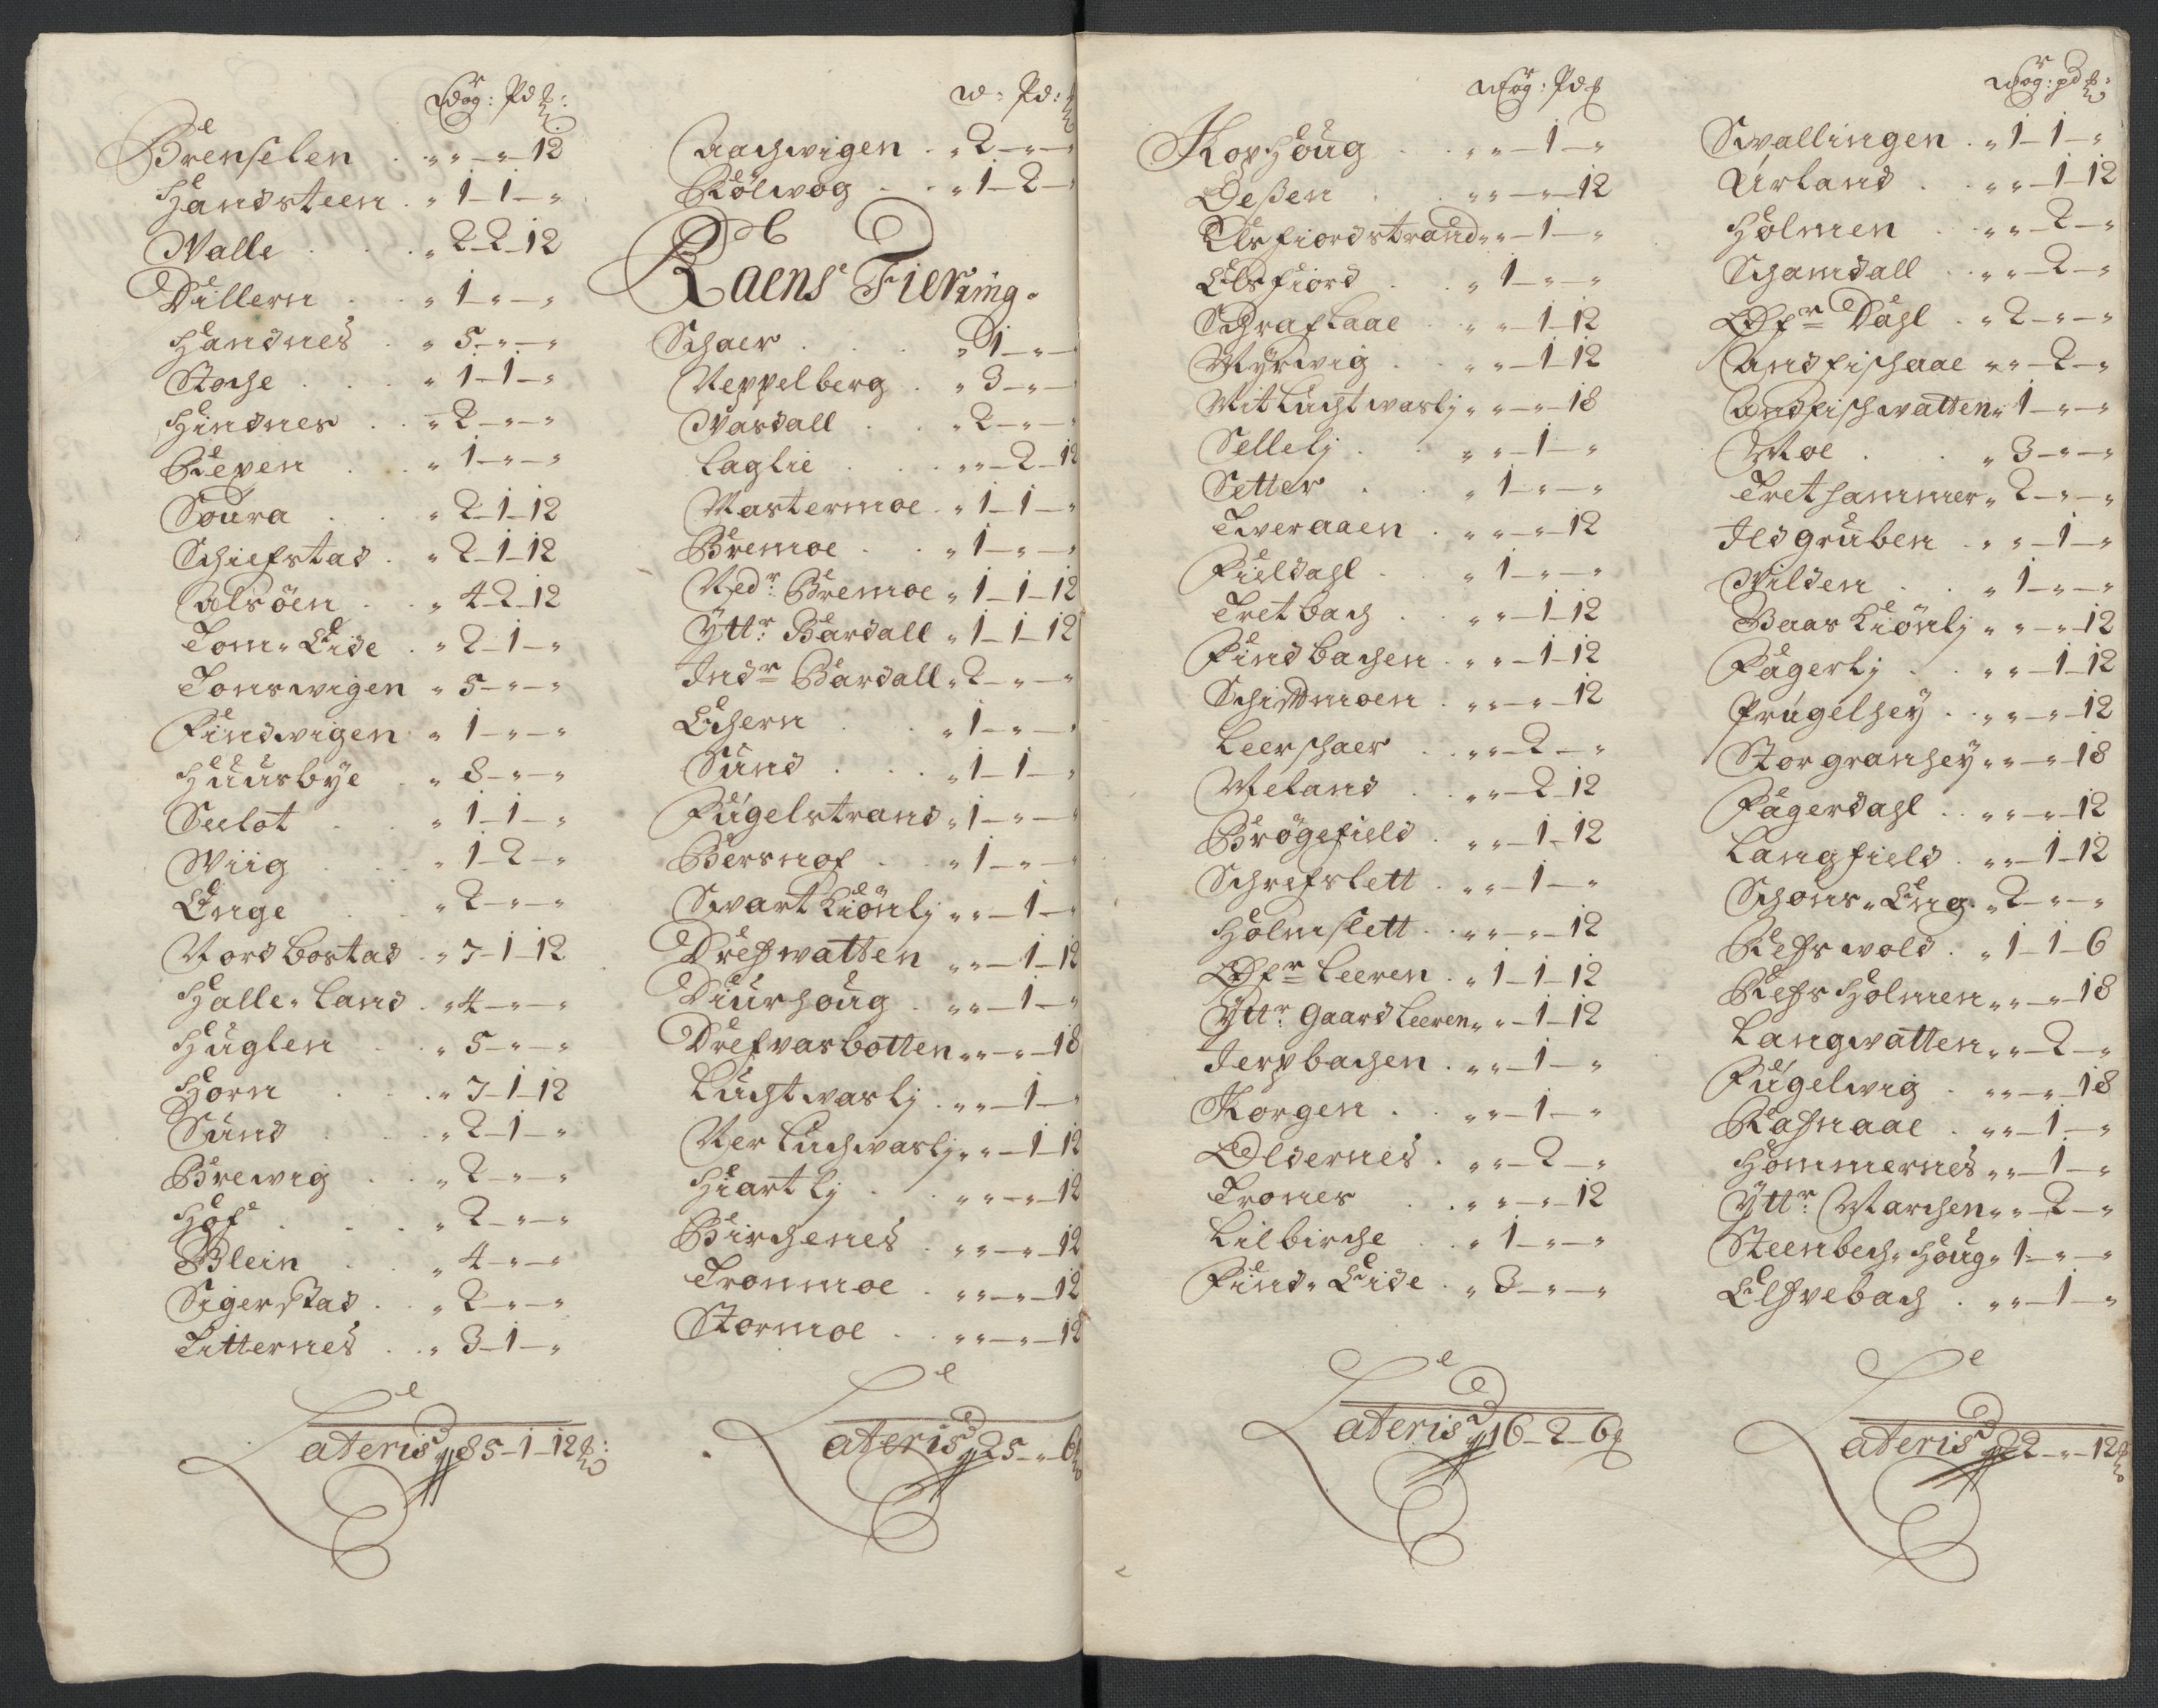 Wog: Pd ℔:
Brenselen . „ „ - „ 12
Handsteen . „ 1 - 1 - „
Walle . . „ 2 - 2 - 12
Dillern . . „ 1 - „ - „
Handnes . „ 5 - „ - „
Stoche . . „ 1 - 1 - „
Hindnes . . „ 2 - „ - „
Repen . . „ 1 - „ - „
Soura . . „ 2 - 1 - 12
Schiefstad . „ 2 - 1 - 12
Alsöen . . „ 4 - 2 - 12
Tom„ Eide . „ 2 - 1 - „
Tonswigen „ 5 - „ - „
Findwigen „ 1 - „ - „
Huusbye . „ 8 - „ - „
Seelot . „ 1 - 1 - „
Wiig . . „ 1 - 2 - „
Enge . . „ 2 - „ - „
Nordbostad . „ 7 - 1 - 12
Halle„ Land . „ 4 - „ - „
Huglen . . „ 5 - „ - „
Horn . . „ 7 - 1 - 12
Sund . . „ 2 - 1 - „
Brewig . . „ 2 - „ - „
Hof . . . „ 2 - „ - „
Blein . . „ 4 - „ - „
Sigerstad . . „ 2 - „ - „
Titternes . . „ 3 - 1 - „
Lateris 85 - 1 - 12 ℔:
W: Pd: ℔
Aachwigen . „ 2 - „ -
Rölwog . . „ 1 - 2 -
Raens Fiering.
Schaer . . . „ 1 - „ -
Neppelberg . „ 3 - „ -
Wasdall . . „ 2 - „ -
Laglie . . . „ „ - 2 - 12
Mastermoe . „ 1 - 1 - „
Bremoe . . „ 1 - „ - „
Nedr: Bremoe „ 1 - 1 - 12
Yttr: Bardall „ 1 - 1 - 12
Indr Bardall „ 2 - „ - „
Echern . . „ 1 - „ -
Sund . . . „ 1 - 1 - „
Fugelstrand „ 1 - „ -
Bersmof . . „ 1 - „ -
Swartkiönlj „ „ - 1 - „
Drefwatten „ „ - 1 - 12
Diurhoug . „ „ - 1 - „
Drefvasbotten „ „ - „ - 18
Luchtwaslj . „ „ - 1 -
Ner Luchwaslj „ „ - 1 - 12
Hiartlj . . „ „ - „ - 12
Birchenes . „ „ - „ - 12
Tronmoe . „ „ - „ - 12
Stormoe . . „ „ - „ - 12
Lateris 25 - „ 6 ℔
Wog: Pd ℔
Kophoug . . „ „ - 1 - „
Oeßen . „ „ - „ - 12
Elsfiordstrand „ „ - 1 - „
Elsfiord . „ 1 - „ - „
Schraflaae . „ „ - 1 - 12
Myrwig . . „ „ - 1 - 12
Mitluchtwaslj „ „ - „ - 18
Sellelj . . „ „ - 1 - „
Setter . . „ 1 - „ - „
Tweraaen . „ „ - „ - 12
Fieldahl . . „ 1 - „ - „
Tretbach . . „ „ - 1 - 12
Findbachen . „ „ - 1 - 12
Schidmoen . „ „ - „ - 12
Leerschaer . „ „ - 2 - „
Meland . . „ „ - 2 - 12
Brögefield . „ „ - 1 - 12
Schrefslett . „ „ - 1 - „
Holmslett . „ „ - „ - 12
Ofr Leeren . „ 1 - 1 - 12
Yttr: Gaard Leeren „ „ - 1 - 12
Jerpbachen . „ „ - 1 - „
Korgen . . „ „ - 1 - „
Oldernes . „ „ - 2 - „
Trones . . „ „ - „ - 12
Lilbirche . . „ 1 - „ - „
Find„ Eide . „ 3 - „ - „
Lateris 16 - 2 - 6 ℔
Wog: pd ℔:
Swallingen . „ 1 - 1 - „
Urland . . „ „ - 1 - 12
Holmen . „ „ - 2 - „
Schamdall . „ „ - 2 - „
Ofr Dahl . „ 2 - „ - „
Andfischaae „ „ - 2 - „
Andfischwatten „ 1 - „ - „
Moe . . „ 3 - „ - „
Trethammer „ 2 - „ - „
Ildgruben . „ „ - 1 - „
Wilden . . „ 1 - „ - „
Baaskiönlj „ „ - „ - 12
Fagerlj . . „ „ - 1 - 12
Prugelhey . „ „ - „ - 12
Storgranhey „ „ - „ - 18
Fagerdahl . . „ „ - „ - 12
Langfield . „ „ - 1 - 12
Schons„ Eng . „ 2 - „ - „
Refswold . . „ 1 - 1 - 6
Refsholmen „ „ - „ - 18
Langwatten „ „ - 2 - „
Fugelwig . „ „ - „ - 18
Rafnaae . „ „ - 1 - „
Hommernes „ „ - 1 - „
Yttr: Marchen „ „ - 2 - „
Steenbech„ Houg „ 1 - „ - „
Elfvebach . „ „ - 1 - „
Lateris 22 - „ - 12 ℔